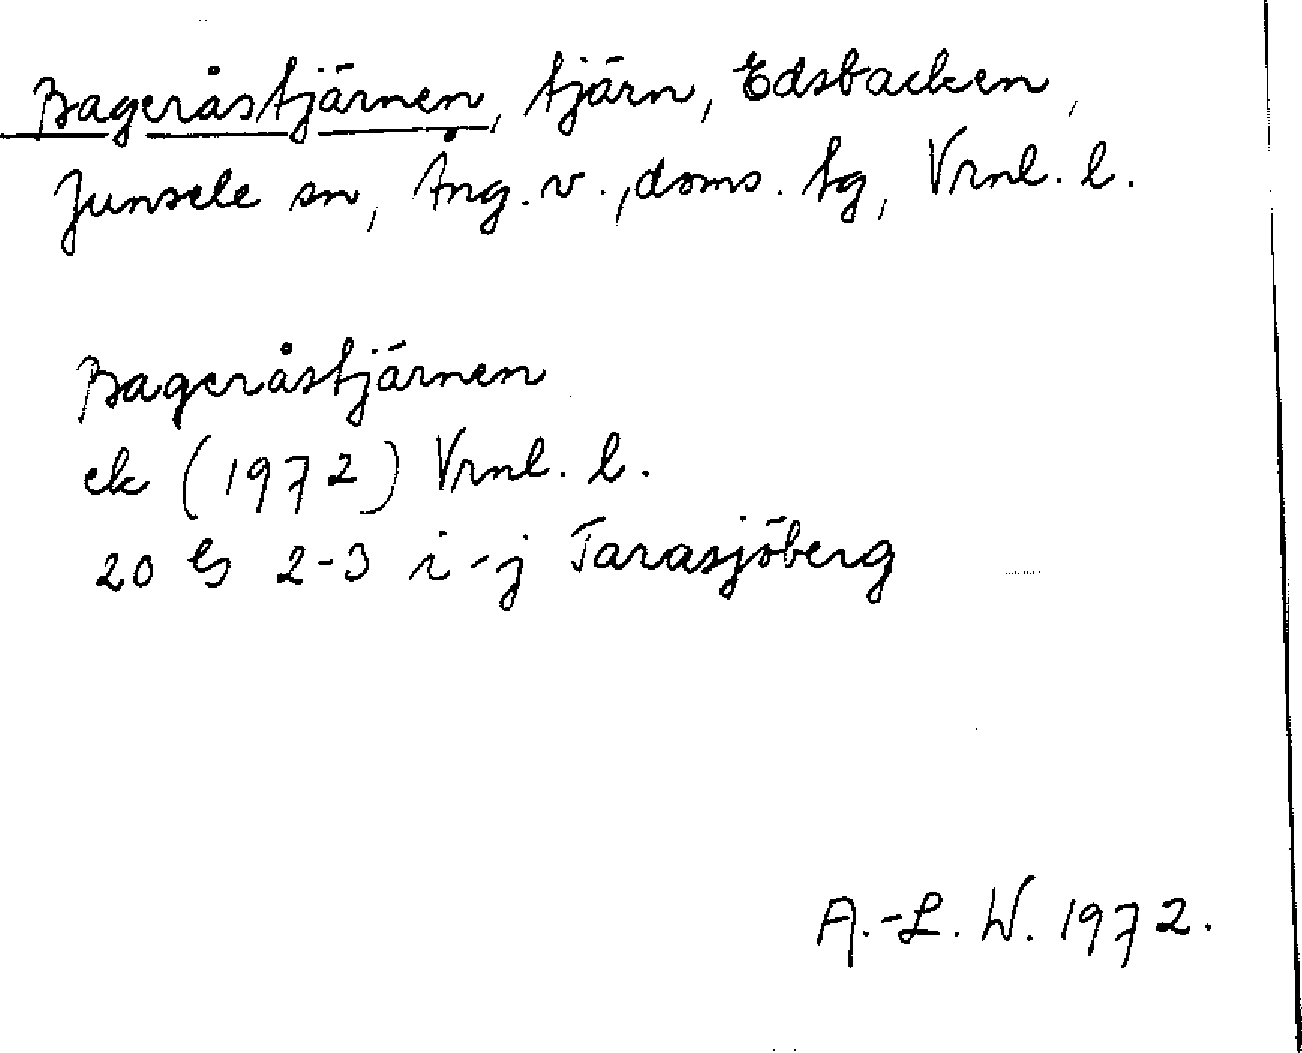 Bageråstjärnen, tjärn, Edsbacken,
Junsele sn, Ång. v., doms. tg, Vrnl. l.
Bageråstjärnen
ek (1972) Vrnl. l.
20 G 2-3 i-j Tarasjöberg
A.-L. W. 1972.